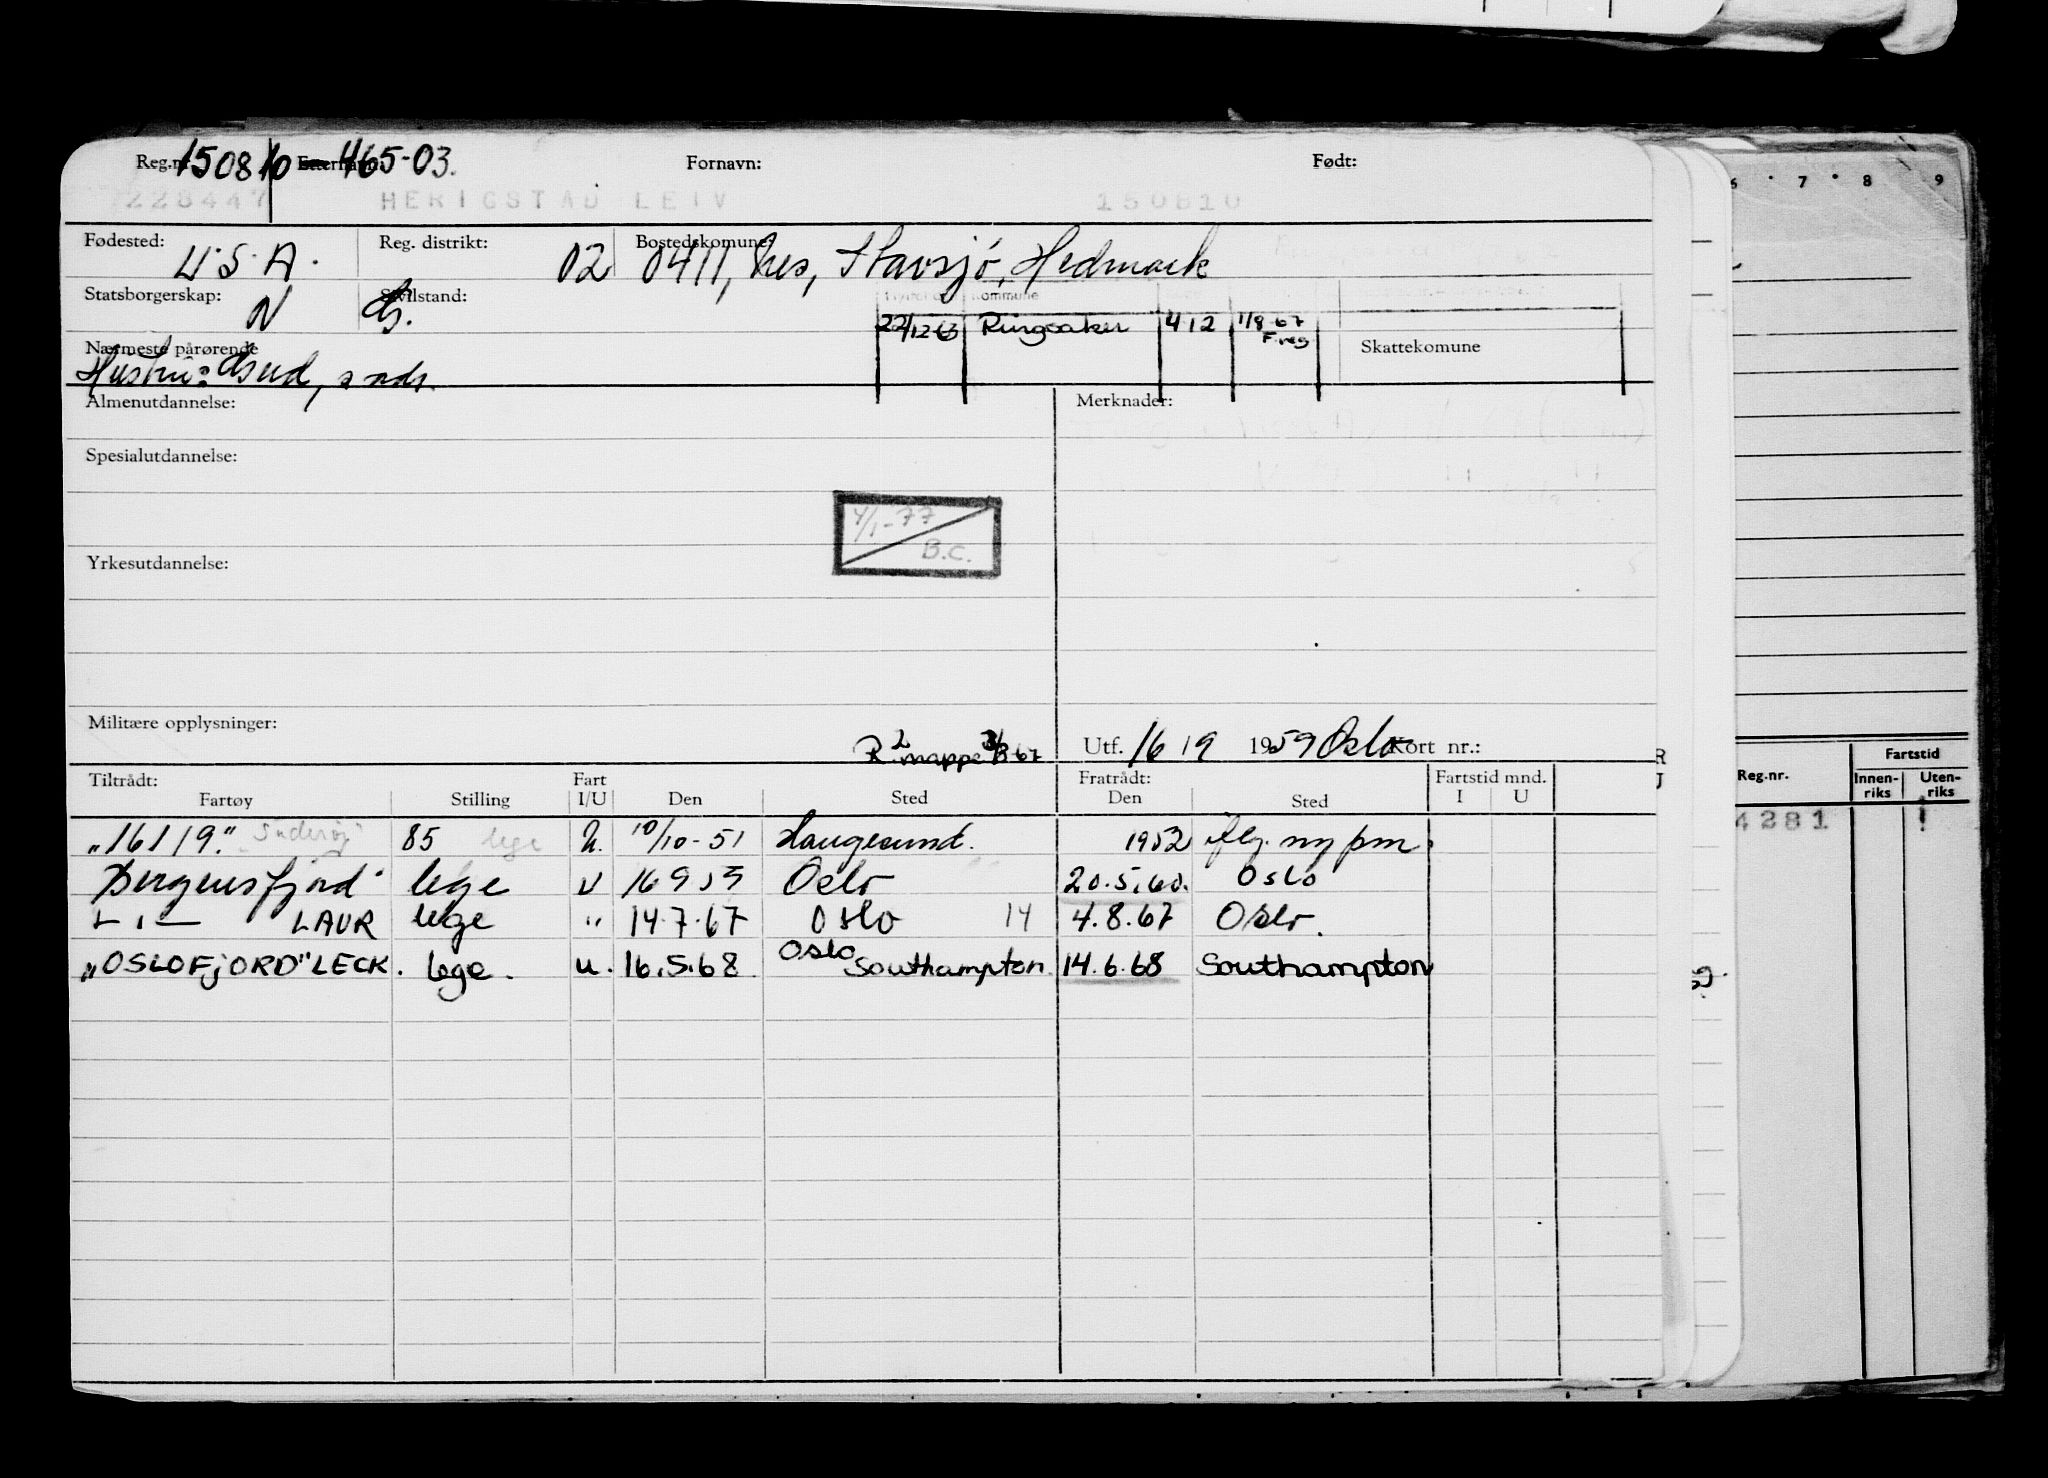 Reg.nr. 150810 Etternavn: 465-03. Fornavn: Født:
228447 HERIGSTAD LEIV 150810
Fødested: Reg. distrikt: Bostedskomune:
U.S.A. 02 0411, Nes, Stavsjø, Hedmark
Statsborgerskap: Sivilstand: Kommune
N G. 22/12-63 Ringsaker 412 1/8-67 F.reg.
Nærmeste pårørende Skattekomune
Hustru: Gud, s ads.
Almenutdannelse: Merknader:
Spesialutdannelse:
4/1-77
B.C.
Yrkesutdannelse:
Militære opplysninger:
R mappe 67 Utf. 16 19 1959 Oslo Kort nr.:
Tiltrådt: Fart Fratrådt: Fartstid mnd.
Fartøy Stilling I/U Den Sted Den Sted I U
"16119." 85 lege U. 10/10-51 Haugesund. 1952 iflg. ny pm.
Bergensfjord" lege U 16 9 59 Oslo 20.5.60. Oslo
— " — LAUR lege " 14.7.67 Oslo 14 4.8.67 Oslo.
"OSLOFJORD" LECK. lege. u. 16.5.68 Oslo Southampton 14.6.68 Southampton
7 8 9
Reg.nr. Fartstid
Innen-riks Uten-riks
4281